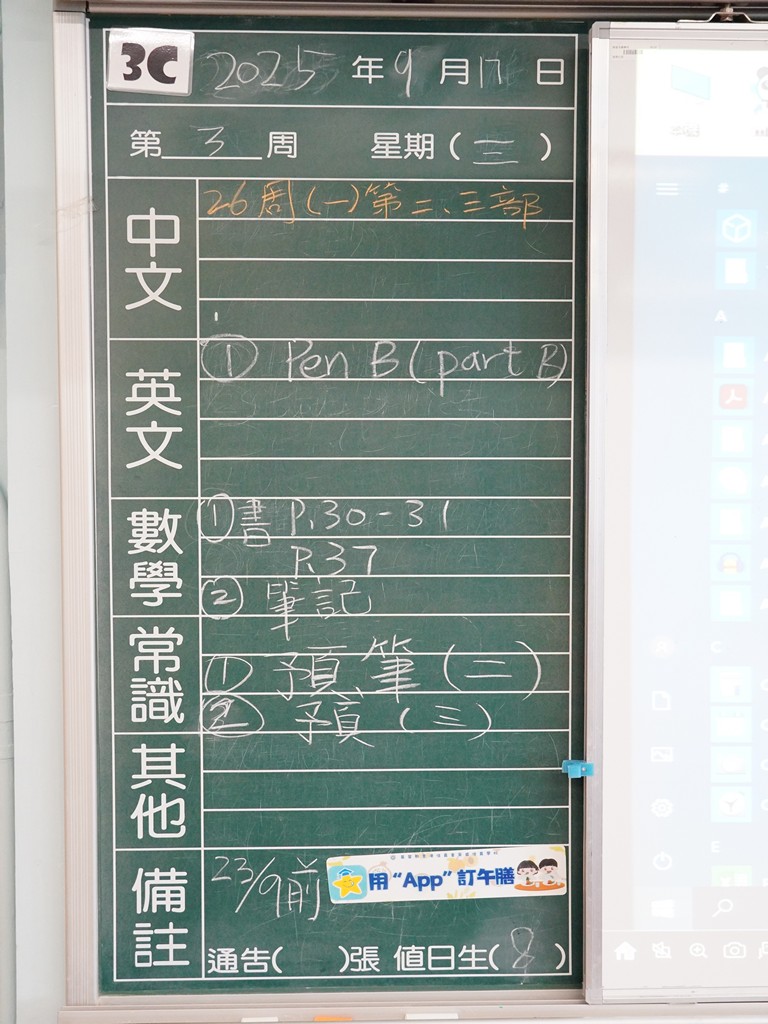 3C 2025年9月17日
第3周 星期(三)
中文
26周(一)第二、三部
英文
① Pen B (part B)
數學
①書 P.30-31
P.37
② 筆記
常識
① 預,筆(二)
② 預(三)
其他
備註
23/9前
用“App”訂午膳
通告( )張 值日生(8)
A
C
E